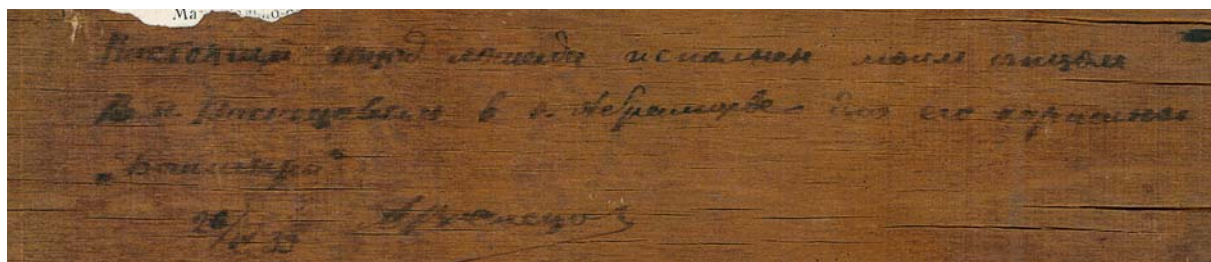 Ма
Настоящий этюд лошади исполнен моим отцом
В. М. Васнецовым в с. Абрамцеве для его картины
„Богатыри"
26/ 33 Васнецов